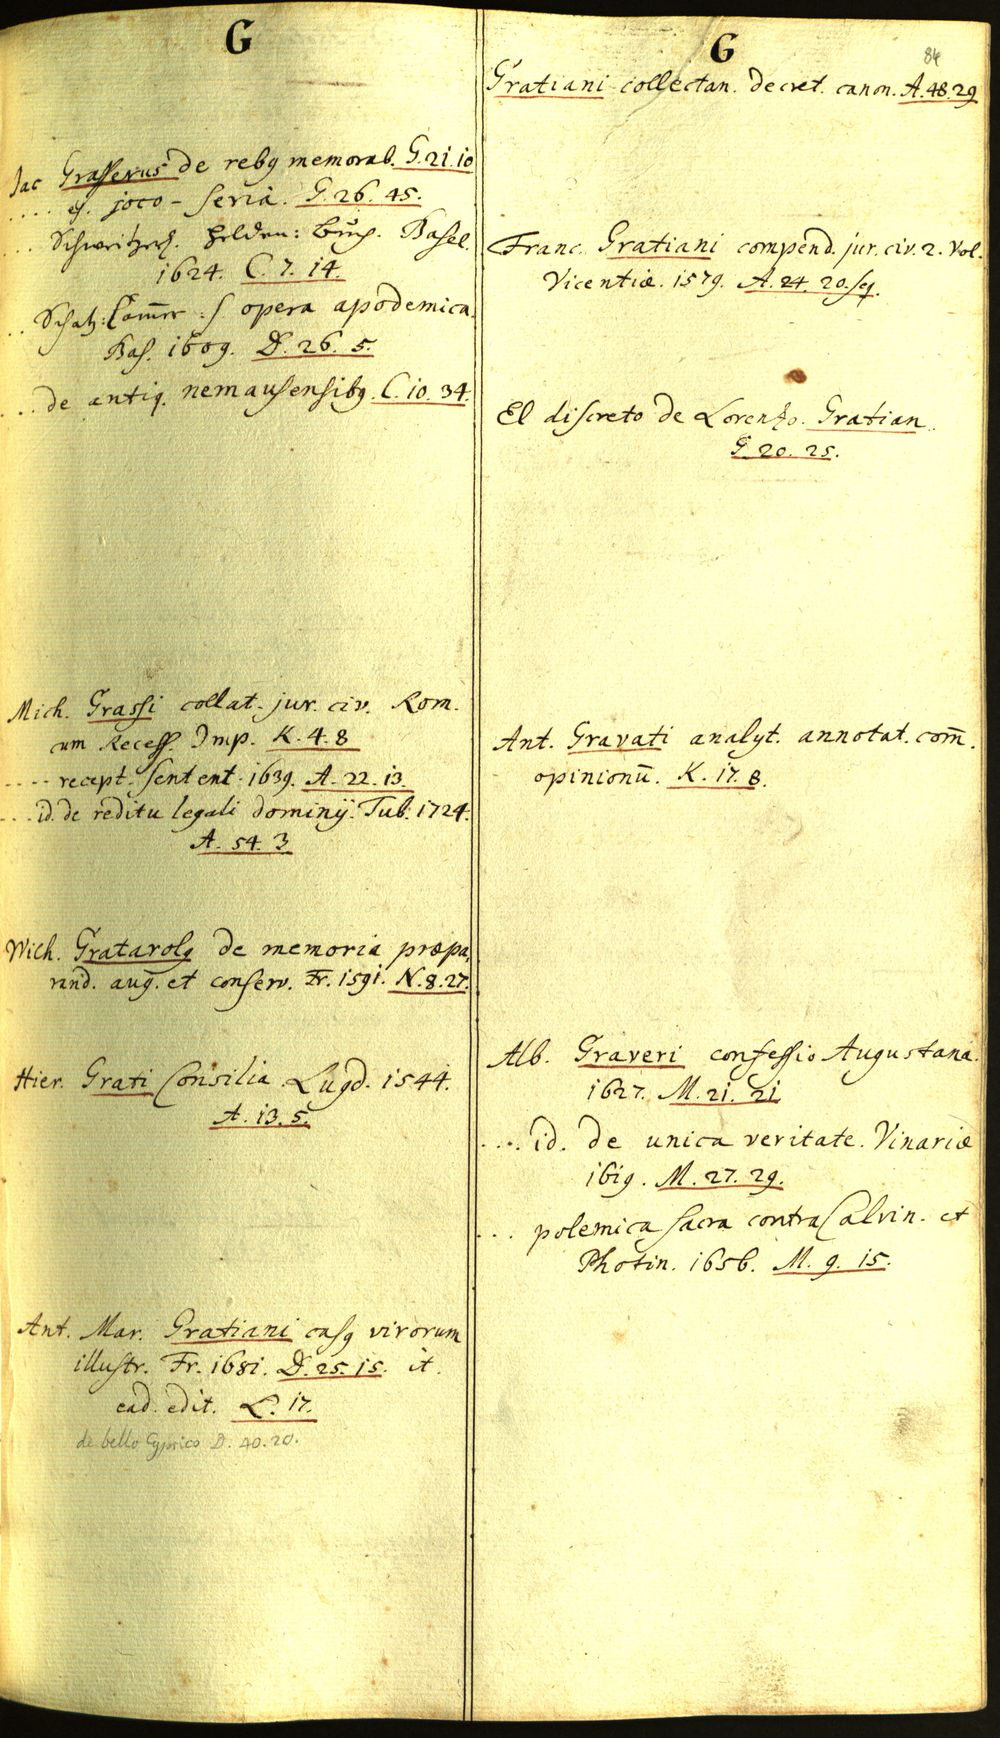 G
Jac Grasserus de rebq memorab. G. 21. 10
.... ej. joco-seria. G. 26. 45.
.. Schweitzer. Helden: Buch. Basel.
1624. C. 7. 14.
.. Schatz: Cam̄er : s opera apodemica.
Bas. 1609. D. 26. 5.
... de antiq. nemausensibq. C. 10. 34.
Mich. Grassi collat. jur. civ. Rom.
cum Recess. Imp. K. 4. 8
.... recept. sentent. 1639. A. 22. 13.
... id. de reditu legali dominij. Tub. 1724.
A. 54. 3
Wilh. Gratarolq de memoria præpa,
rand. aug. et conserv. Fr. 1591. N. 8. 27.
Hier. Grati Consilia. Lugd. 1544.
A. 13. 5.
Ant. Mar. Gratiani casq virorum
illustr. Fr. 1681. D. 25. 15. it.
ead. edit. L. 17.
de bello Cyprico D. 40. 20.
G
84
Gratiani collectan. decret. canon. A. 48. 29
Franc. Gratiani compend. jur. civ. 2. Vol.
Vicentiæ. 1579. A. 24. 20. seq.
El discreto de Lorenzo. Gratian.
G. 20. 25.
Ant. Gravati analyt. annotat. com̄.
opinionū. K. 17. 8.
Alb. Graveri confessio Augustana.
1627. M. 21. 21
.... id. de unica veritate. Vinariæ
1619. M. 27. 29.
... polemica sacra contra Calvin. et
Photin. 1656. M. 9. 15.